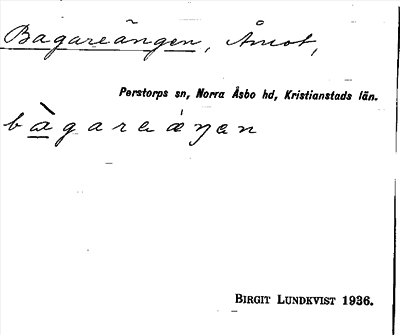 Bagareängen, Åmot,
Perstorps sn, Norra Åsbo hd, Kristianstads län.
bàgareáŋen
BIRGIT LUNDKVIST 1936.